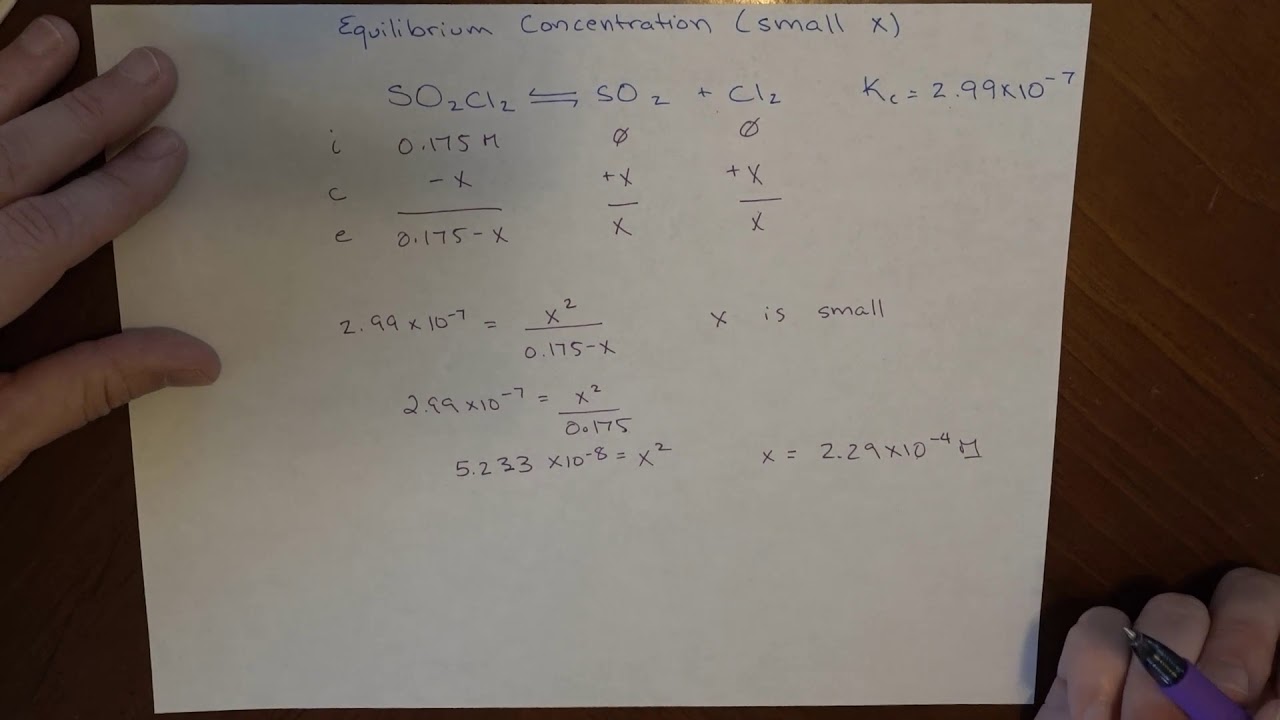 Equilibrium Concentration (small x)
SO₂Cl₂ ⇌ SO₂ + Cl₂ Kc = 2.99×10⁻⁷
i 0.175 M ∅ ∅
c -x +x +x
e 0.175-x x x
2.99×10⁻⁷ = x²/(0.175-x) x is small
2.99×10⁻⁷ = x²/0.175
5.233 ×10⁻⁸ = x² x = 2.29×10⁻⁴ M